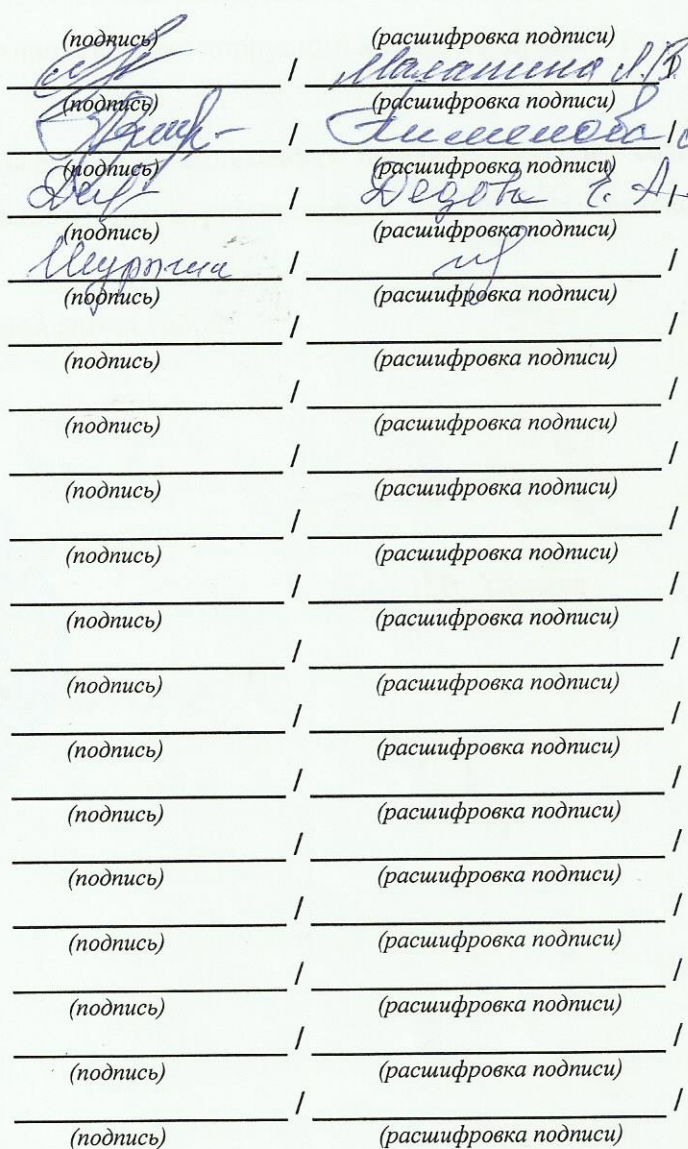 (подпись) (расшифровка подписи)
/ Малашина Л.В
(подпись) (расшифровка подписи)
/ Пименова /
(подпись) (расшифровка подписи)
/ Дедова Е. А. /
(подпись) (расшифровка подписи)
/ /
(подпись) (расшифровка подписи)
/ /
(подпись) (расшифровка подписи)
/ /
(подпись) (расшифровка подписи)
/ /
(подпись) (расшифровка подписи)
/ /
(подпись) (расшифровка подписи)
/ /
(подпись) (расшифровка подписи)
/ /
(подпись) (расшифровка подписи)
/ /
(подпись) (расшифровка подписи)
/ /
(подпись) (расшифровка подписи)
/ /
(подпись) (расшифровка подписи)
/ /
(подпись) (расшифровка подписи)
/ /
(подпись) (расшифровка подписи)
/ /
(подпись) (расшифровка подписи)
/ /
(подпись) (расшифровка подписи)